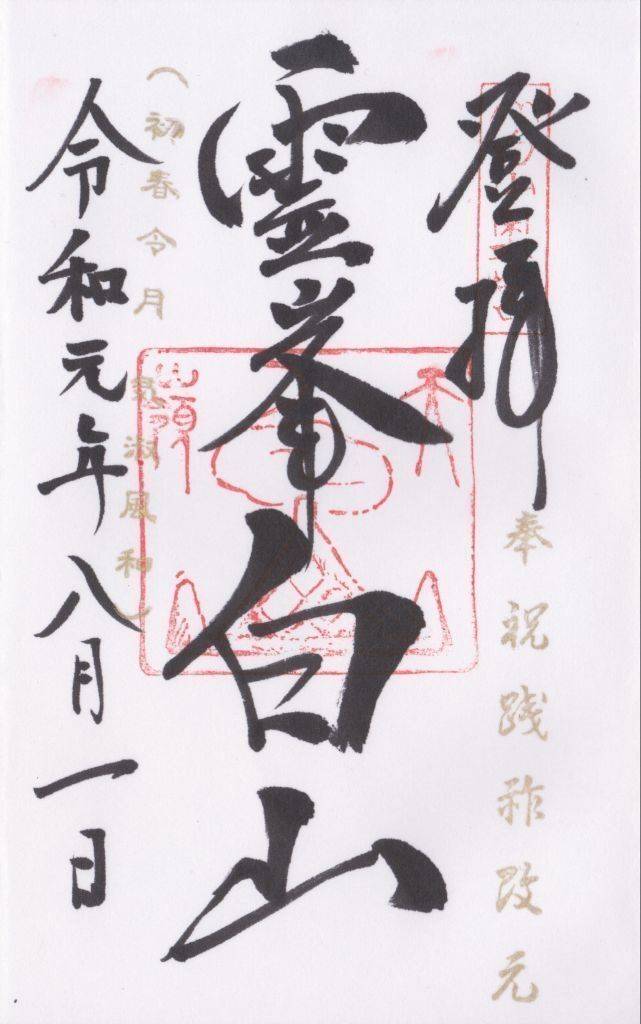 登拝
奉祝践祚改元
霊峯白山
(初春令月
気淑風和)
令和元年八月一日